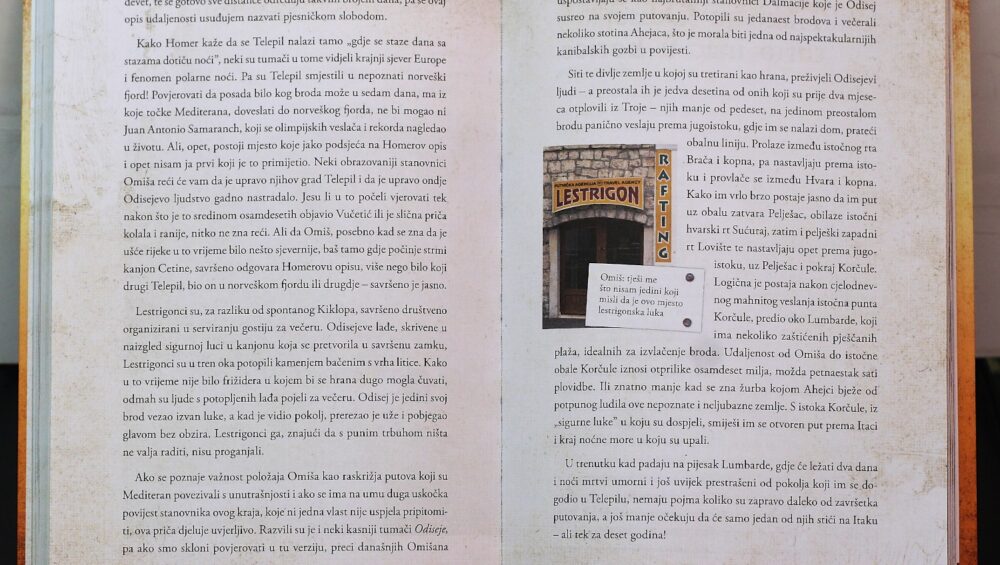 devet, te se gotovo sve distance određuju takvim brojem dana, pa se ovaj
opis udaljenosti usuđujem nazvati pjesničkom slobodom.
Kako Homer kaže da se Telepil nalazi tamo „gdje se staze dana sa
stazama dotiču noći”, neki su tumači u tome vidjeli krajnji sjever Europe
i fenomen polarne noći. Pa su Telepil smjestili u nepoznati norveški
fjord! Povjerovati da posada bilo kog broda može u sedam dana, ma iz
koje točke Mediterana, doveslati do norveškog fjorda, ne bi mogao ni
Juan Antonio Samaranch, koji se olimpijskih veslača i rekorda nagledao
u životu. Ali, opet, postoji mjesto koje jako podsjeća na Homerov opis
i opet nisam ja prvi koji je to primijetio. Neki obrazovaniji stanovnici
Omiša reći će vam da je upravo njihov grad Telepil i da je upravo ondje
Odisejevo ljudstvo gadno nastradalo. Jesu li u to počeli vjerovati tek
nakon što je to sredinom osamdesetih objavio Vučetić ili je slična priča
kolala i ranije, nitko ne zna reći. Ali da Omiš, posebno kad se zna da je
ušće rijeke u to vrijeme bilo nešto sjevernije, baš tamo gdje počinje strmi
kanjon Cetine, savršeno odgovara Homerovu opisu, više nego bilo koji
drugi Telepil, bio on u norveškom fjordu ili drugdje – savršeno je jasno.
Lestrigonci su, za razliku od spontanog Kiklopa, savršeno društveno
organizirani u serviranju gostiju za večeru. Odisejeve lađe, skrivene u
naizgled sigurnoj luci u kanjonu koja se pretvorila u savršenu zamku,
Lestrigonci su u tren oka potopili kamenjem bačenim s vrha litice. Kako
u to vrijeme nije bilo frižidera u kojem bi se hrana dugo mogla čuvati,
odmah su ljude s potopljenih lađa pojeli za večeru. Odisej je jedini svoj
brod vezao izvan luke, a kad je vidio pokolj, prerezao je uže i pobjegao
glavom bez obzira. Lestrigonci ga, znajući da s punim trbuhom ništa
ne valja raditi, nisu proganjali.
Ako se poznaje važnost položaja Omiša kao raskrižja putova koji su
Mediteran povezivali s unutrašnjosti i ako se ima na umu duga uskočka
povijest stanovnika ovog kraja, koje ni jedna vlast nije uspjela pripitomi-
ti, ova priča djeluje uvjerljivo. Razvili su je i neki kasniji tumači Odiseje,
pa ako smo skloni povjerovati u tu verziju, preci današnjih Omišana
uspostavljaju se kao najbrutalniji stanovnici Dalmacije koje je Odisej
susreo na svojem putovanju. Potopili su jedanaest brodova i večerali
nekoliko stotina Ahejaca, što je morala biti jedna od najspektakularnijih
kanibalskih gozbi u povijesti.
Siti te divlje zemlje u kojoj su tretirani kao hrana, preživjeli Odisejevi
ljudi – a preostala ih je jedva desetina od onih koji su prije dva mjese-
ca otplovili iz Troje – njih manje od pedeset, na jedinom preostalom
brodu panično veslaju prema jugoistoku, gdje im se nalazi dom, prateći
obalnu liniju. Prolaze između istočnog rta
Brača i kopna, pa nastavljaju prema isto-
ku i provlače se između Hvara i kopna.
Kako im vrlo brzo postaje jasno da im put
uz obalu zatvara Pelješac, obilaze istočni
hvarski rt Sućuraj, zatim i pelješki zapadni
rt Lovište te nastavljaju opet prema jugo-
istoku, uz Pelješac i pokraj Korčule.
Logična je postaja nakon cjelodnev-
nog mahnitog veslanja istočna punta
Korčule, predio oko Lumbarde, koji
ima nekoliko zaštićenih pješčanih
plaža, idealnih za izvlačenje broda. Udaljenost od Omiša do istočne
obale Korčule iznosi otprilike osamdeset milja, možda petnaestak sati
plovidbe. Ili znatno manje kad se zna žurba kojom Ahejci bježe od
potpunog ludila ove nepoznate i neljubazne zemlje. S istoka Korčule, iz
„sigurne luke” u koju su dospjeli, smiješi im se otvoren put prema Itaci
i kraj noćne more u koju su upali.
U trenutku kad padaju na pijesak Lumbarde, gdje će ležati dva dana
i noći mrtvi umorni i još uvijek prestrašeni od pokolja koji im se do-
godio u Telepilu, nemaju pojma koliko su zapravo daleko od završetka
putovanja, a još manje očekuju da će samo jedan od njih stići na Itaku
– ali tek za deset godina!
TURISTIČKA AGENCIJA TRAVEL AGENCY
LESTRIGON
RAFTING
Omiš: tješi me
što nisam jedini koji
misli da je ovo mjesto
lestrigonska luka